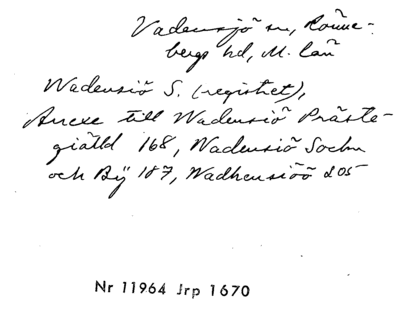 Vadensjö sn, Rönne-
bergs hd, M. län
Wadensiö S. (registret),
Anexe till Wadensiö Präste-
giälld 168, Wadensiö Sochn
och Bÿ 187, Wadhensiöö 205
Nr 11964 Jrp 1670